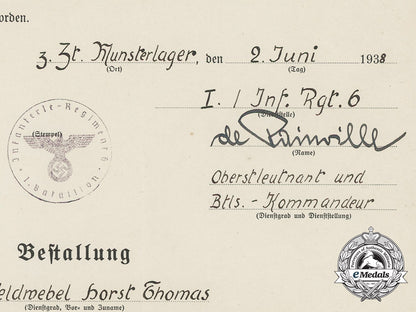 orden.
z. Zt. Munsterlager, den 2. Juni 1938
(Ort) (Tag)
I. / Inf. Rgt. 6
(Dienststelle)
de Rainville
(Name)
Oberstleutnant und
Btls. - Kommandeur
(Dienstgrad und Dienststellung)
Infanterie-Regiment 6
(Stempel)
I. Bataillon
Bestallung
eldwebel Horst Thomas
(Dienstgrad, Vor- und Zuname)
eMedals